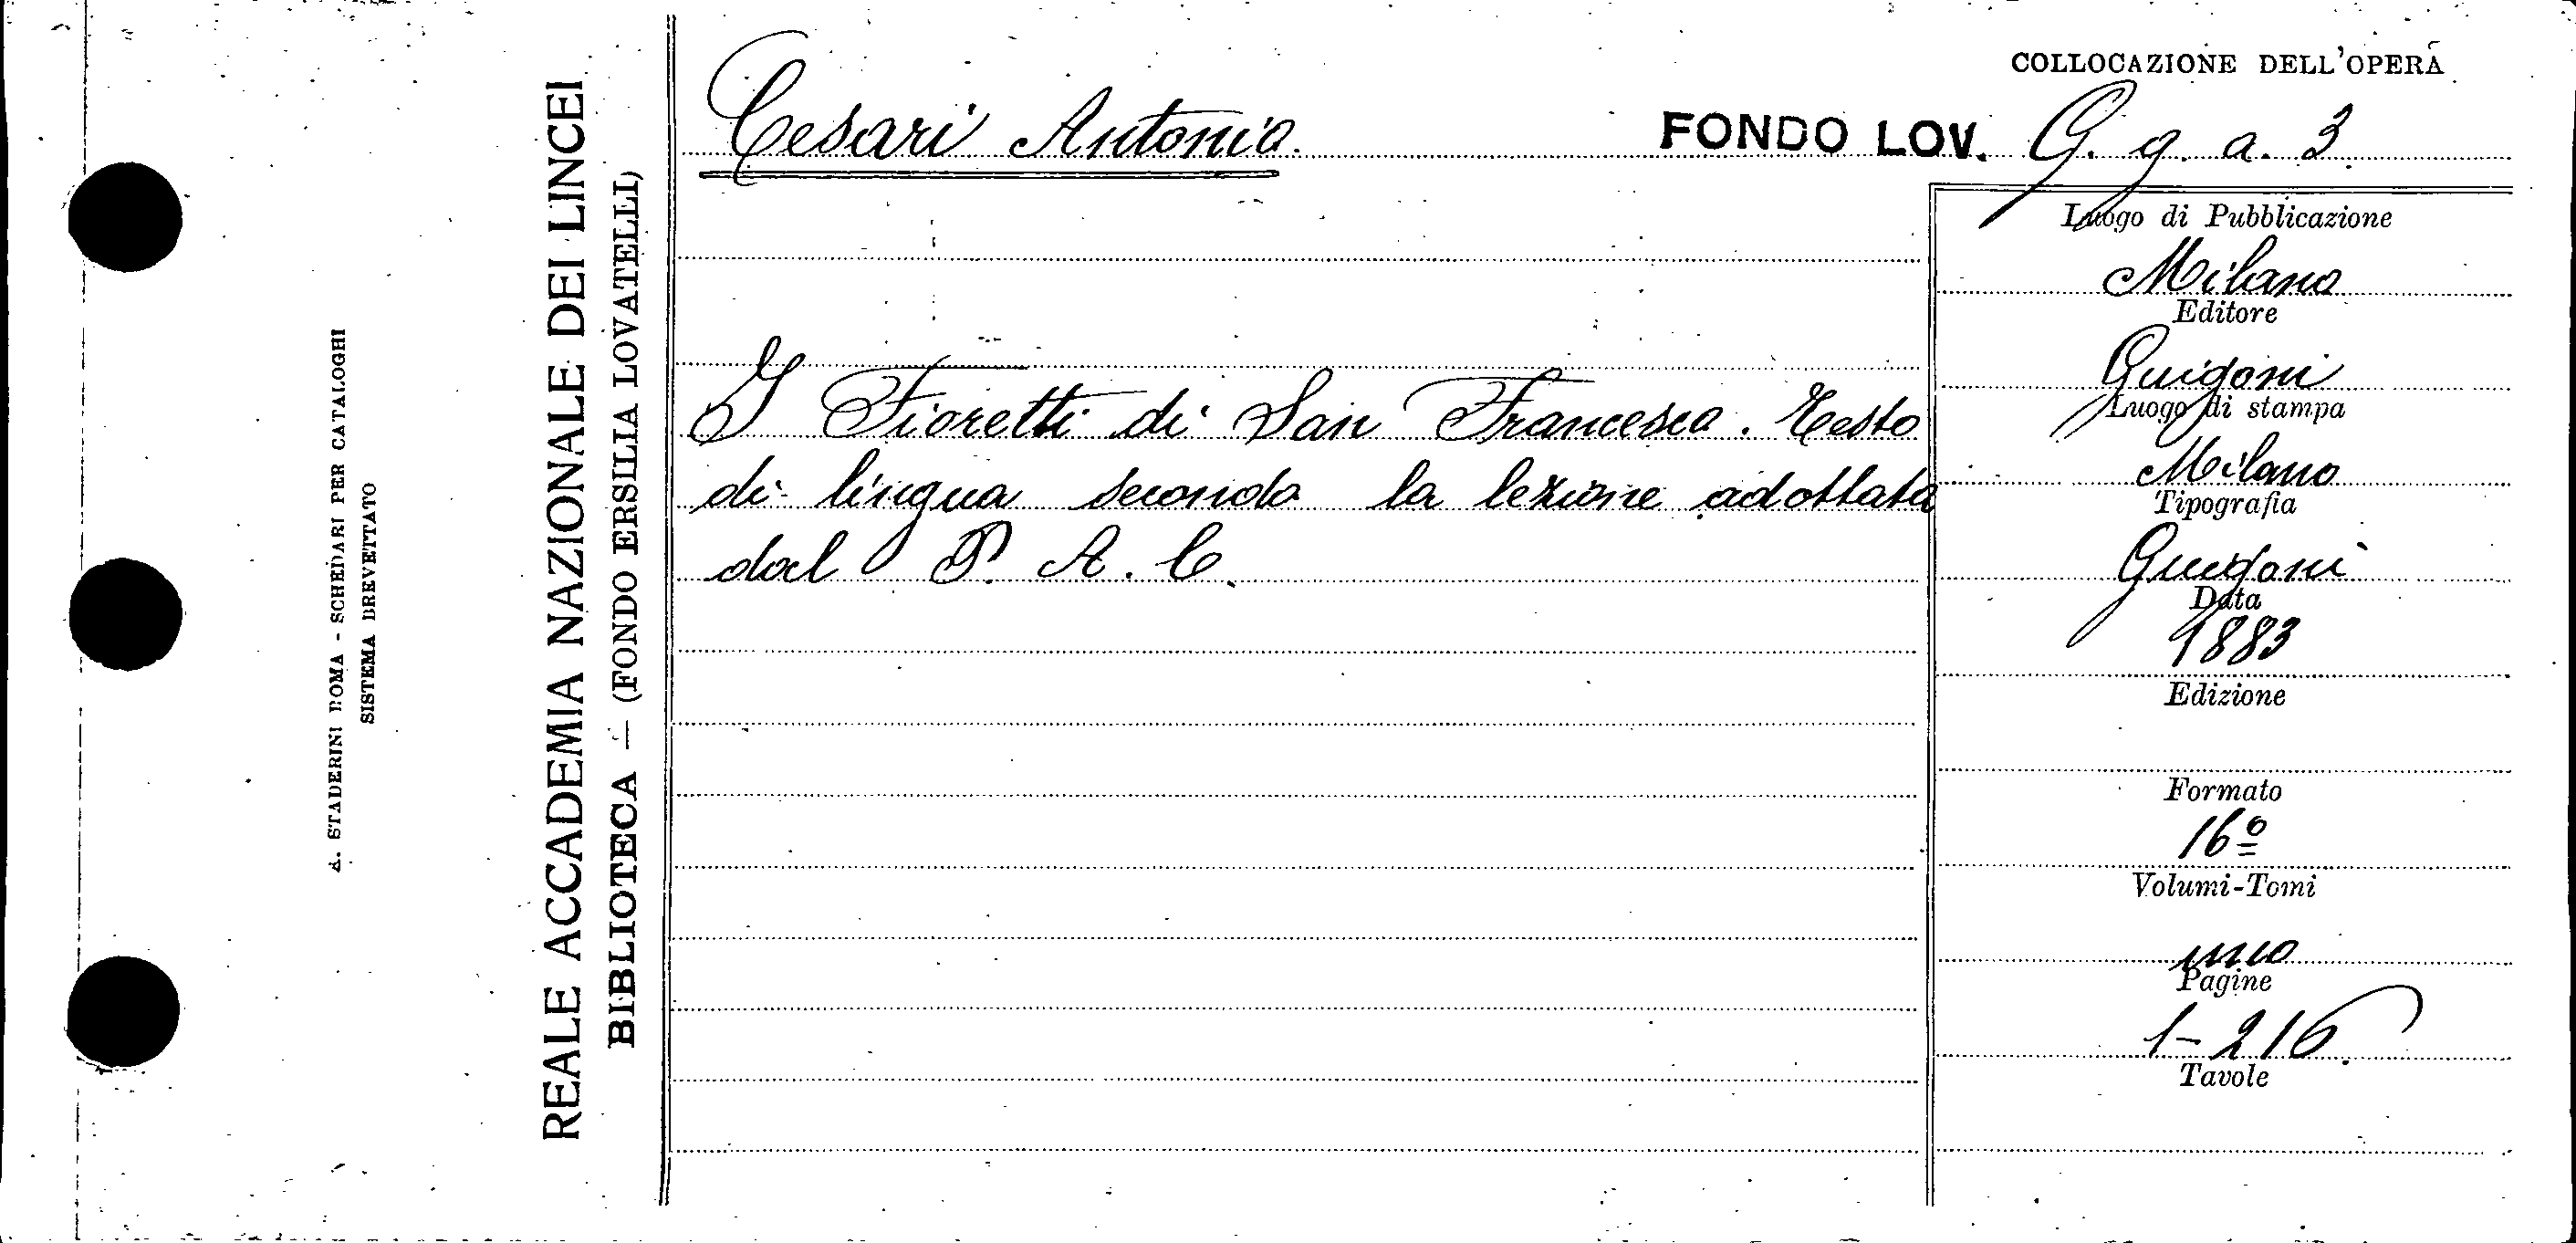 COLLOCAZIONE DELL'OPERA
Cesari Antonio.
FONDO LOV. G. g. a. 3.
I Fioretti di San Francesco. Testo
di lingua secondo la lezione adottata
dal P. A. C.
Luogo di Pubblicazione
Milano
Editore
Guigoni
Luogo di stampa
Milano
Tipografia
Guigoni
Data
1883
Edizione
Formato
16º
Volumi-Tomi
uno
Pagine
1-216.
Tavole
REALE ACCADEMIA NAZIONALE DEI LINCEI
BIBLIOTECA — (FONDO ERSILIA LOVATELLI)
STADERINI ROMA - SCHEDARI PER CATALOGHI
SISTEMA BREVETTATO